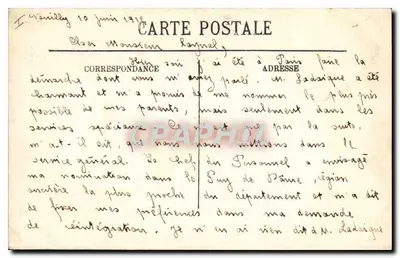 I Neuilly 10 Juin 191
CARTE POSTALE
Cher Monsieur Raynal,
Hier soir j'ai été à Paris faire la
CORRESPONDANCE ADRESSE
démarche dont vous m'aviez parlé. M. Ladaigue a été
charmant et m'a promis de me nommer le plus près
possible de mes parents, mais seulement dans les
services spéciaux. Ce n'est que par la suite,
m'a-t-il dit, que nous nous mettrions dans le
service général. Le chef du Personnel a envisagé
ma nomination dans le Puy de Dôme, région
minière la plus proche du département et m'a dit
de fixer mes préférences dans ma demande
de réintégration. Je n'en ai rien dit à M. Ladaigue
CPARAMA